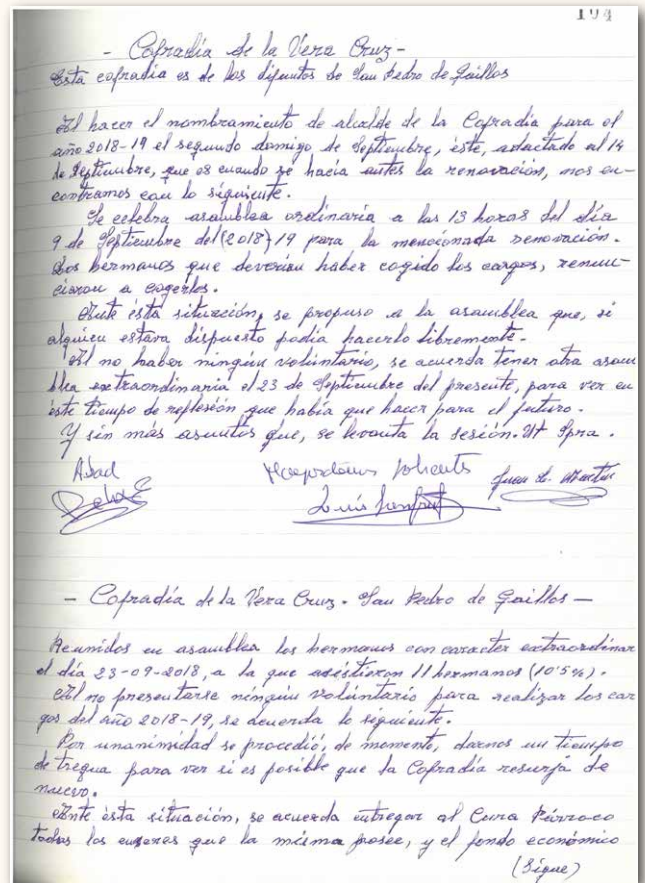 194
- Cofradía de la Vera Cruz -
Esta cofradía es de los difuntos de San Pedro de Gaillos
Al hacer el nombramiento de alcalde de la Cofradía para el
año 2018-19 el segundo domigo de Septiembre, éste, adactado al 14
de Septiembre, que es cuando se hacía antes la renovación, nos en-
contramos con lo siguiente.
Se celebra asamblea ordinaria a las 13 horas del día
9 de Septiembre del (2018) 19 para la mencionada renovación.
Los hermanos que deverían haber cogido los cargos, renun-
ciaron a cogerlos.
Ante ésta situación, se propuso a la asamblea que, si
alguien estava dispuesto podia hacerlo libremente.
Al no haber ningún voluntario, se acuerda tener otra asam
blea extraordinaria el 23 de Septiembre del presente, para ver en
éste tiempo de reflesión que había que hacer para el futuro.
Y sin más asuntos que, se levanta la sesión. Ut Spra.
Abad
Mayordomo Saliente
Juan L. Martin
Luis
- Cofradía de la Vera Cruz - San Pedro de Gaillos -
Reunidos en asamblea los hermanos con caracter extraordinar
el día 23-09-2018, a la que asistieron 11 hermanos (10'5%).
Al no presentarse ningún voluntario para realizar los car
gos del año 2018-19, se acuerda lo siguiente.
Por unanimidad se procedió, de momento, darnos un tiempo
de tregua para ver si es posible que la Cofradía resurja de
nuevo.
Ante ésta situación, se acuerda entregar al Cura Párroco
todos los enseres que la misma posee, y el fondo económico
(Sigue)